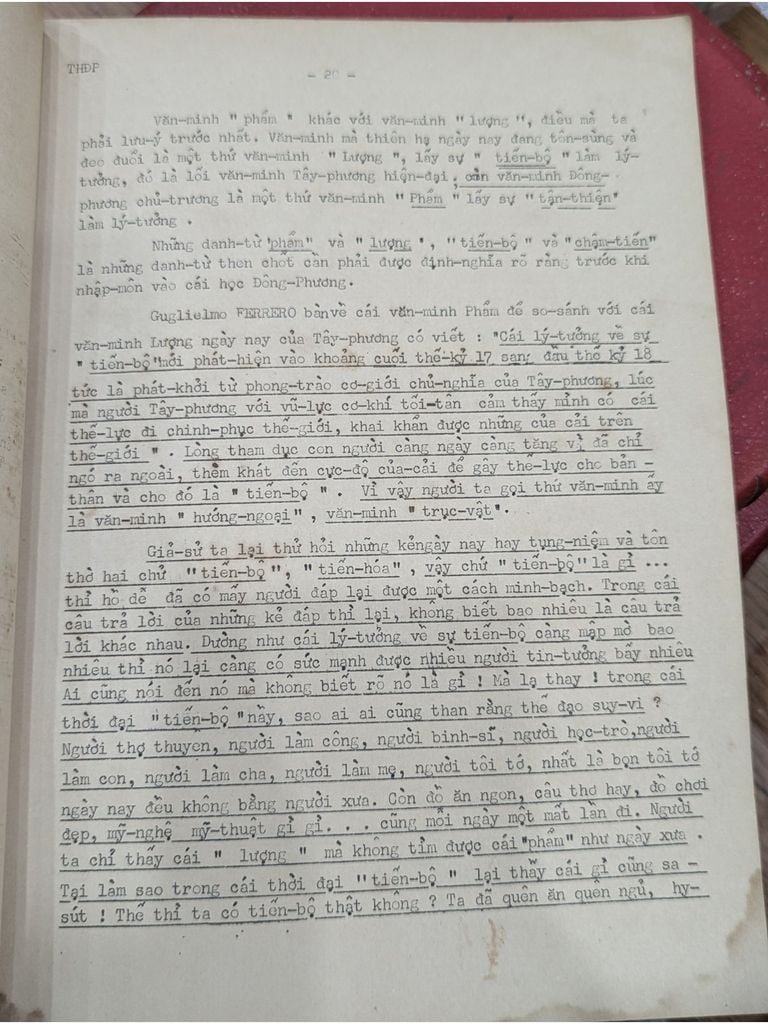 THĐP
- 20 -
Văn-minh " phẩm " khác với văn-minh " lượng ", điều mà ta
phải lưu-ý trước nhất. Văn-minh mà thiên hạ ngày nay đang tôn-sùng và
đeo đuổi là một thứ văn-minh " Lượng ", lấy sự " tiến-bộ " làm lý-
tưởng, đó là lối văn-minh Tây-phương hiện-đại , còn văn-minh Đông-
phương chủ-trương là một thứ văn-minh " Phẩm " lấy sự " tận-thiện"
làm lý-tưởng .
Những danh-từ "phẩm" và " lượng ", " tiến-bộ " và "chậm-tiến"
là những danh-từ then chốt cần phải được định-nghĩa rõ ràng trước khi
nhập-môn vào cái học Đông-Phương.
Guglielmo FERRERO bànvề cái văn-minh Phẩm để so-sánh với cái
văn-minh Lượng ngày nay của Tây-phương có viết : "Cái lý-tưởng về sự
" tiến-bộ "mới phát-hiện vào khoảng cuối thế-kỷ 17 sang đầu thế kỷ 18
tức là phát-khởi từ phong-trào cơ-giới chủ-nghĩa của Tây-phương, lúc
mà người Tây-phương với vũ-lực cơ-khí tối-tân cảm thấy mình có cái
thế-lực đi chinh-phục thế-giới, khai khẩn được những của cải trên
thế-giới " . Lòng tham dục con người càng ngày càng tăng vì đã chỉ
ngó ra ngoài, thèm khát đến cực-độ của-cải để gây thế-lực cho bản -
thân và cho đó là " tiến-bộ " . Vì vậy người ta gọi thứ văn-minh ấy
là văn-minh " hướng-ngoại" , văn-minh " trục-vật".
Giả-sử ta lại thử hỏi những kẻngày nay hay tụng-niệm và tôn
thờ hai chữ "tiến-bộ", " tiến-hóa" , vậy chứ "tiến-bộ" là gì ...
thì hồ dễ đã có mấy người đáp lại được một cách minh-bạch. Trong cái
câu trả lời của những kẻ đáp thì lại, không biết bao nhiêu là câu trả
lời khác nhau. Dường như cái lý-tưởng về sự tiến-bộ càng mập mờ bao
nhiêu thì nó lại càng có sức mạnh được nhiều người tin-tưởng bấy nhiêu
Ai cũng nói đến nó mà không biết rõ nó là gì ! Mà lạ thay ! trong cái
thời đại "tiến-bộ "này, sao ai ai cũng than rằng thế đạo suy-vi ?
Người thợ thuyền, người làm công, người binh-sĩ, người học-trò,người
làm con, người làm cha, người làm mẹ, người tôi tớ, nhất là bọn tôi tớ
ngày nay đều không bằng người xưa. Còn đồ ăn ngon, câu thơ hay, đồ chơi
đẹp, mỹ-nghệ mỹ-thuật gì gì. . . cũng mỗi ngày một mất lần đi. Người
ta chỉ thấy cái " lượng " mà không tìm được cái "phẩm" như ngày xưa .
Tại làm sao trong cái thời đại "tiến-bộ " lại thấy cái gì cũng sa -
sút ! Thế thì ta có tiến-bộ thật không ? Ta đã quên ăn quên ngủ, hy-